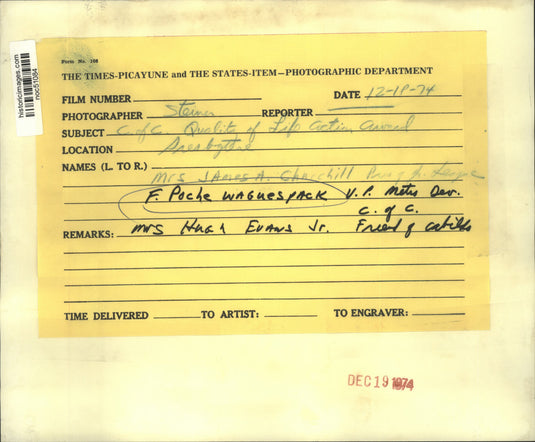 Form No. 108
THE TIMES-PICAYUNE and THE STATES-ITEM—PHOTOGRAPHIC DEPARTMENT
FILM NUMBER
DATE 12-18-74
PHOTOGRAPHER Steiner
REPORTER
SUBJECT C of C Quality of Life Action Award
LOCATION Presbytere
NAMES (L. TO R.)
Mrs JAMES A. Churchill Pres of Jr. League
F. POCHE WAGUESPACK V.P. Metro Dev.
C. of C.
REMARKS: MRS HUGH EVANS Jr. Friend of Cabildo
TIME DELIVERED TO ARTIST: TO ENGRAVER:
DEC 19 1974
historicimages.com
noc51084